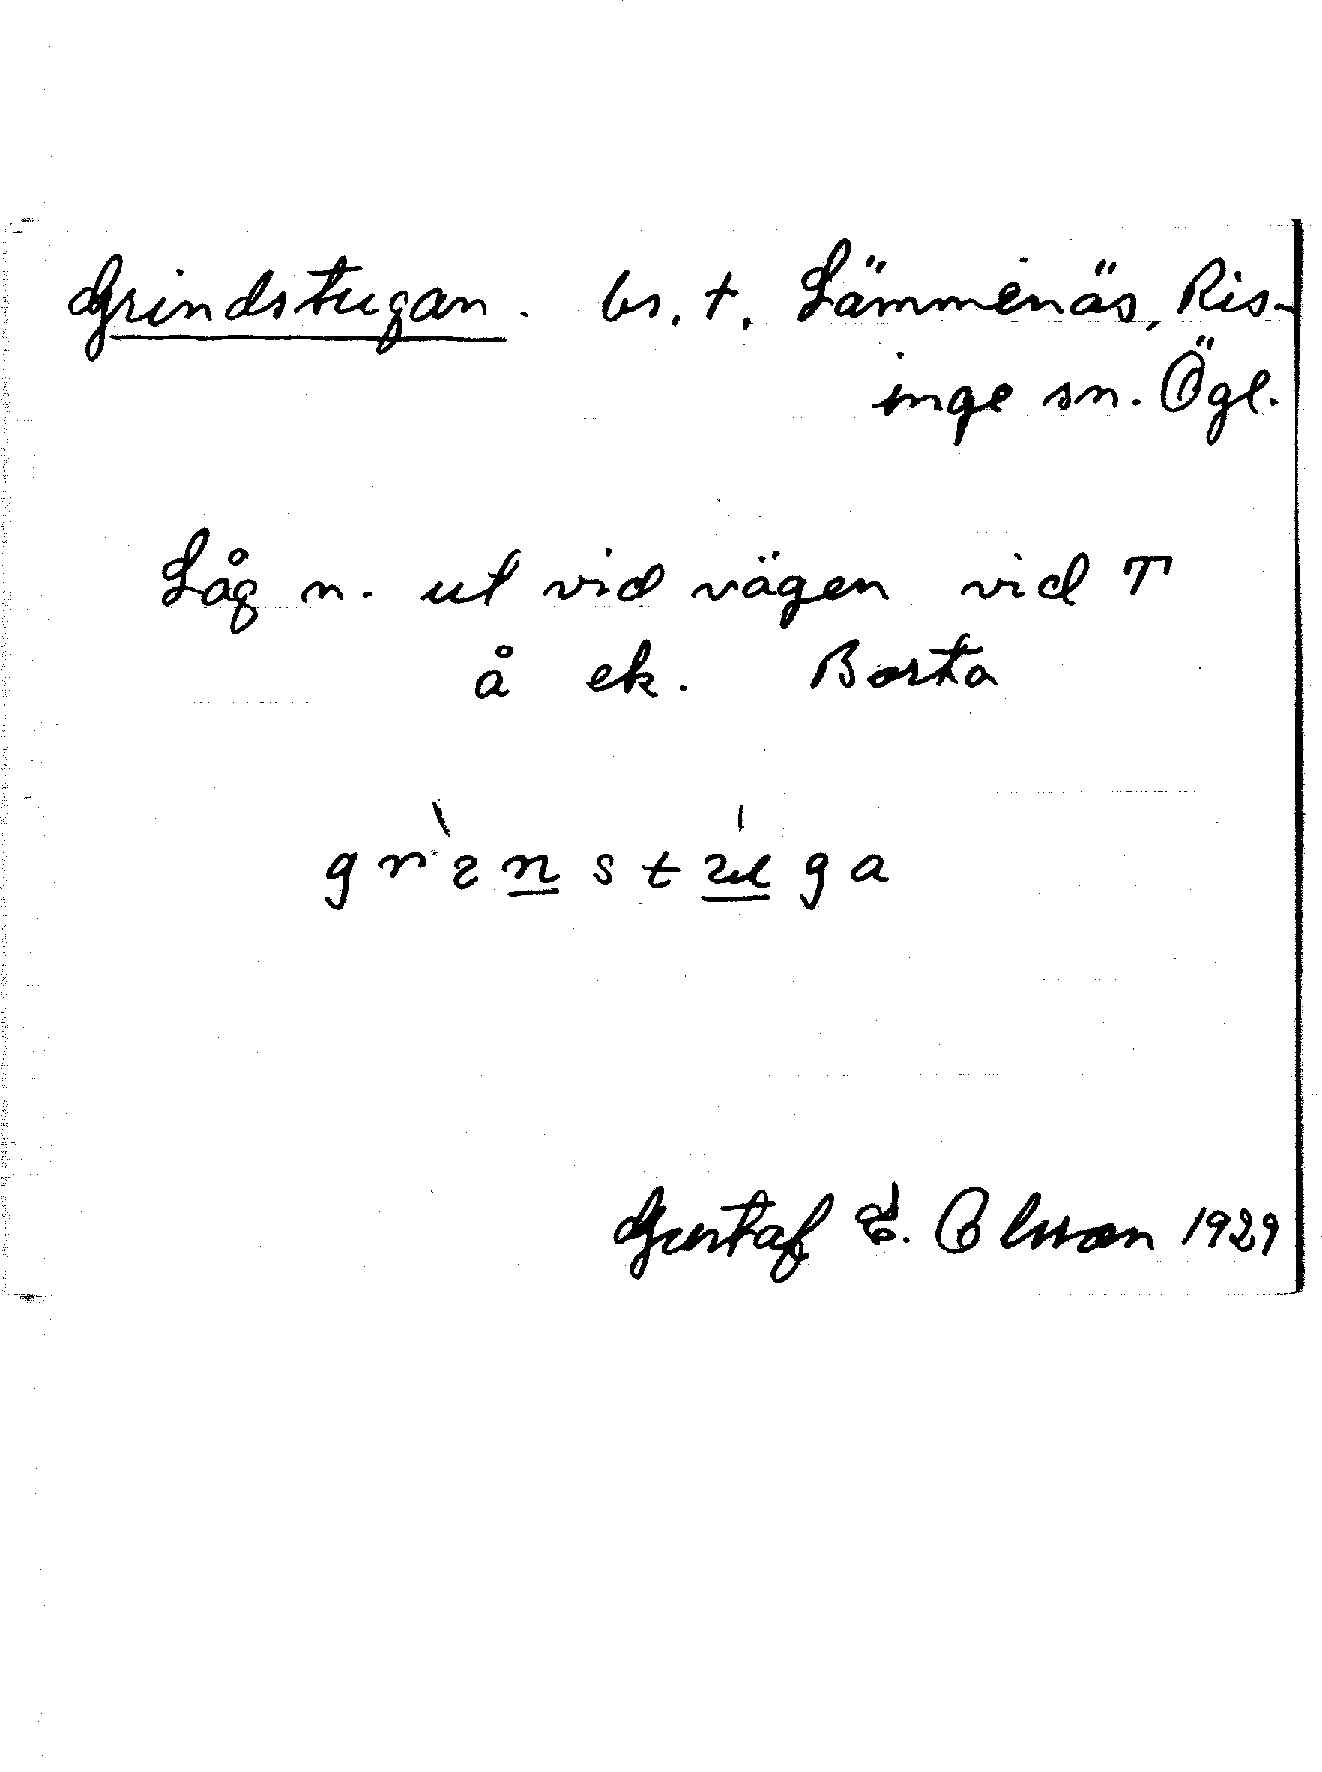 Grindstugan. bs. t. Lämmenäs, Ris-
inge sn. Ögl.
Låg n. ut vid vägen vid T
å ek. Borta
grinstuga
Gustaf E. Olsson 1929